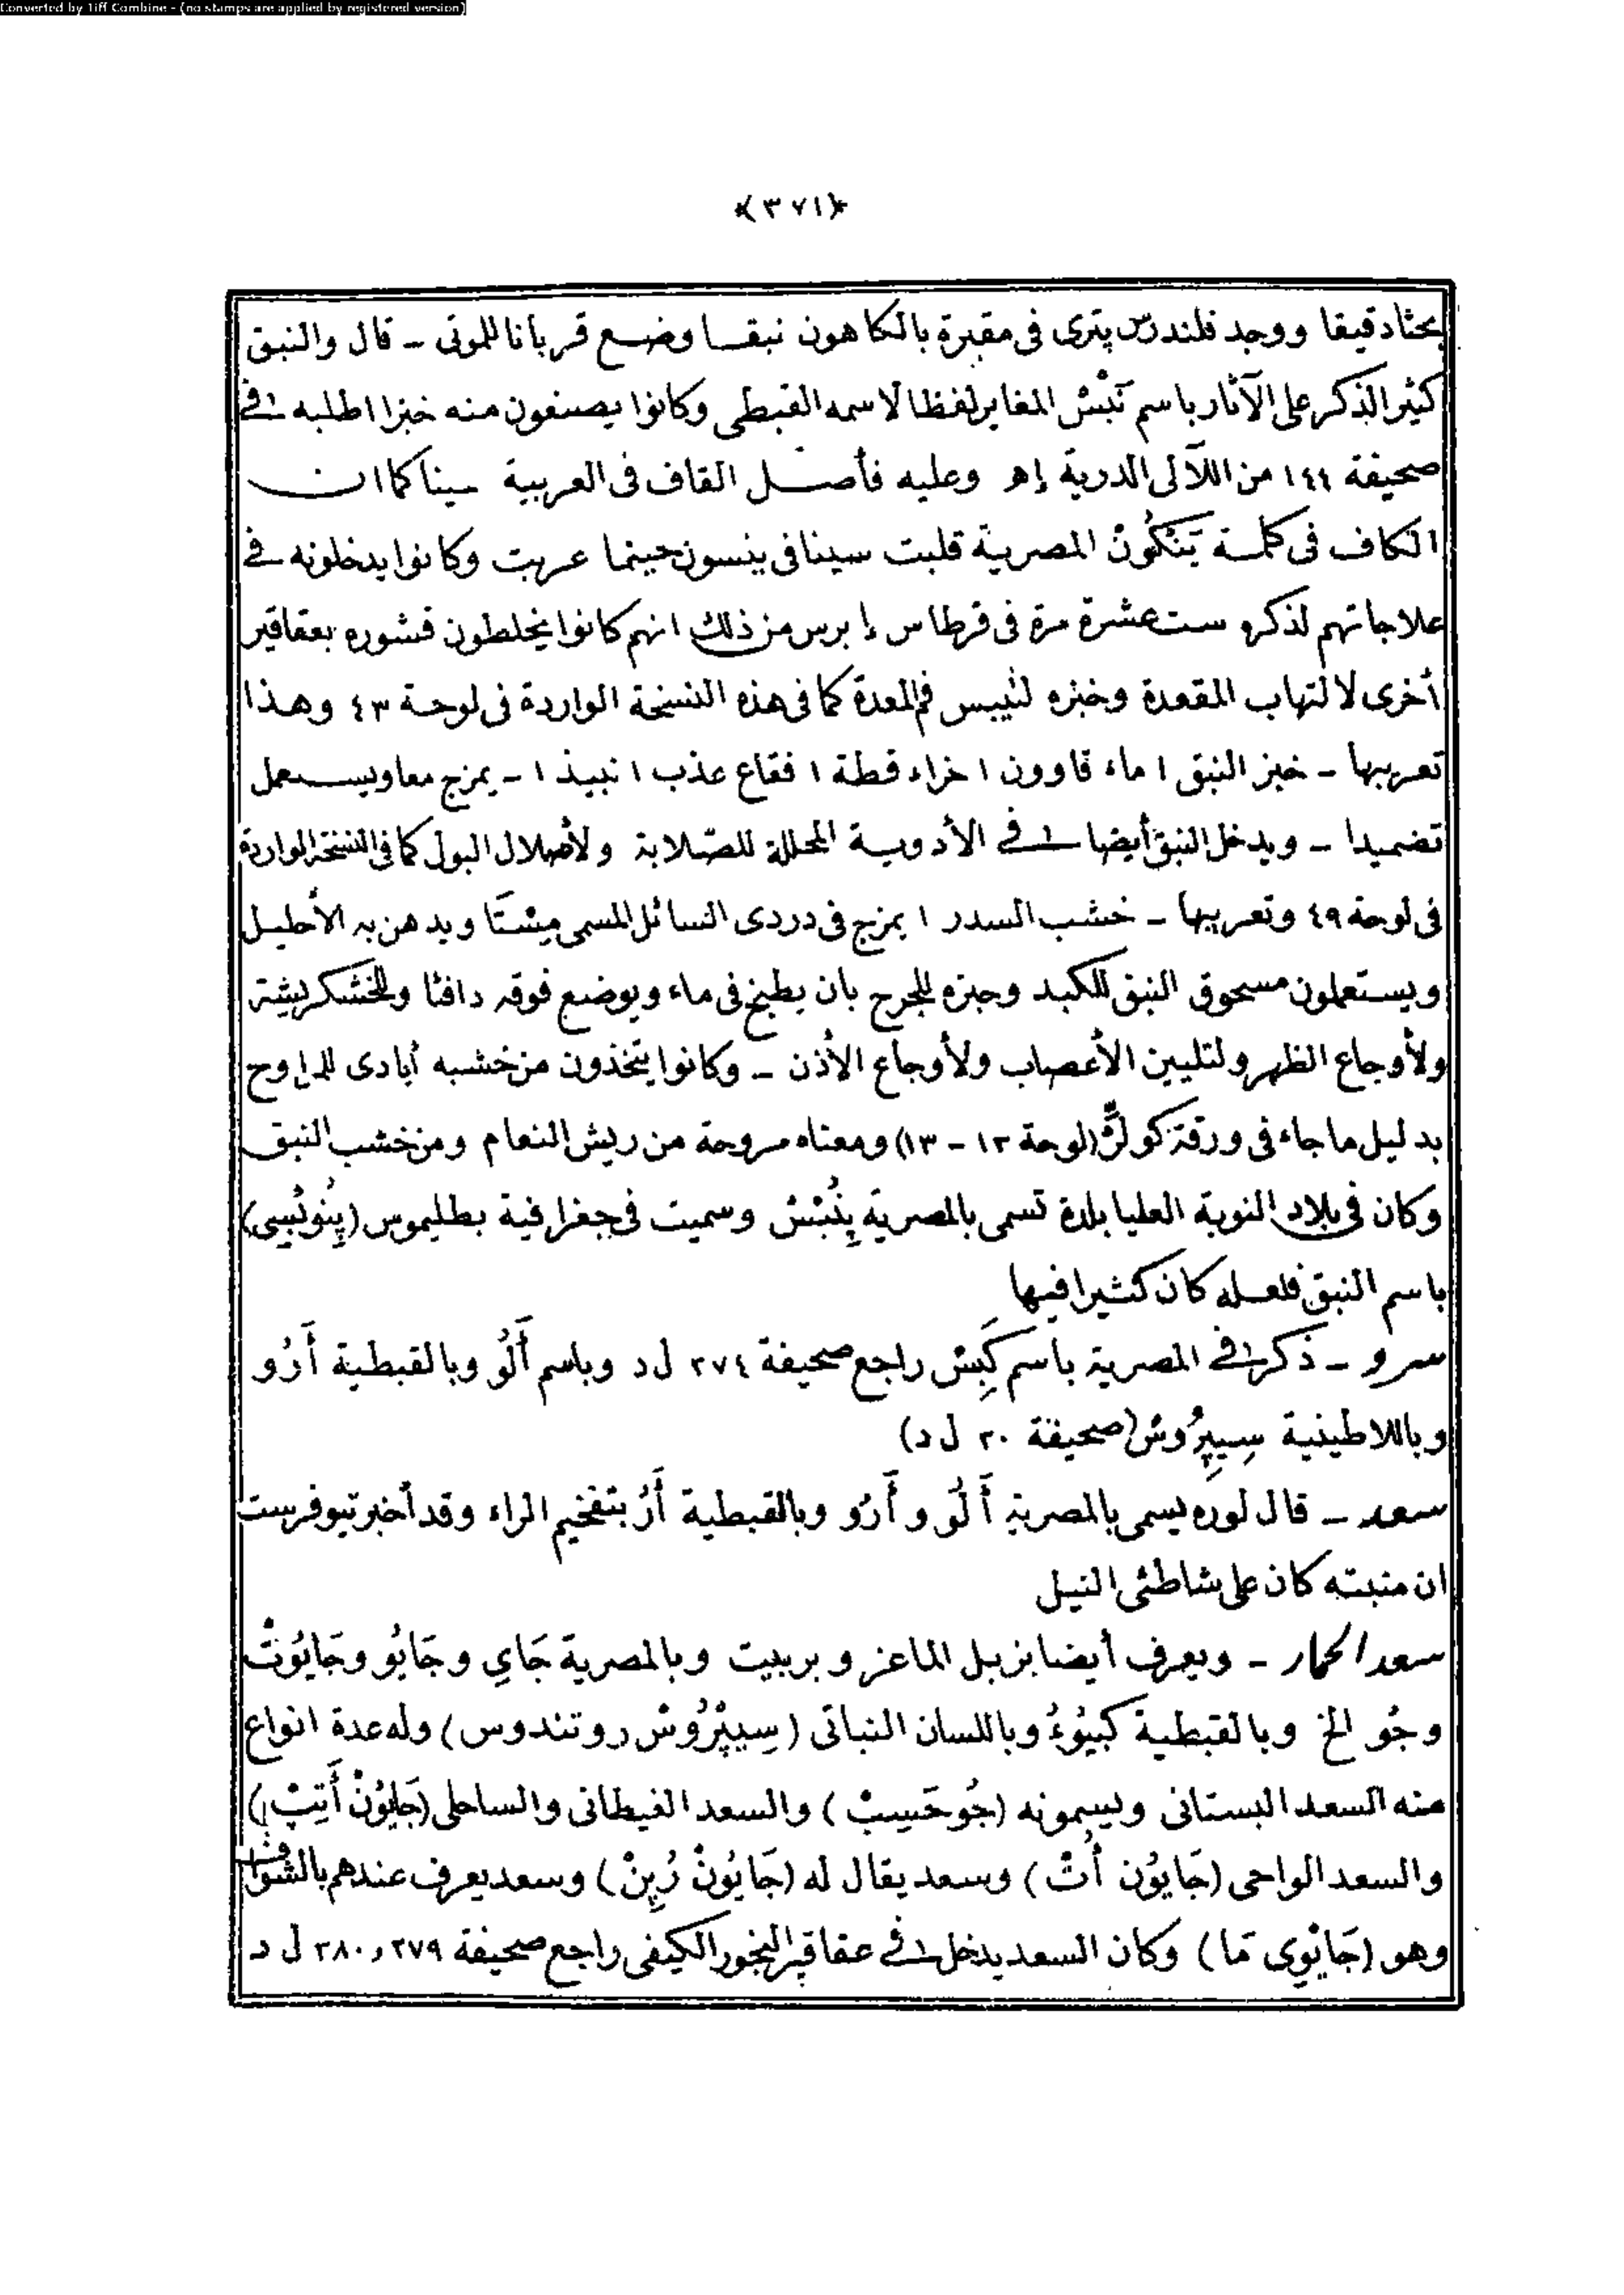 Converted by Tiff Combine - (no stamps are applied by registered version)
﴿٣٧١﴾
بحثا دقيقا ووجد فلندرس پترى فى مقبرة بالكاهون نبقا وضع قربانا للموتى ـ قال والنبق
كثير الذكر على الآثار باسم نَبْس المغاير لفظا لاسمه القبطى وكانوا يصنعون منه خبزا اطلبه فى
صحيفة ١٤٤ من اللآلى الدرية إهـ وعليه فأصل القاف فى العربية سينا كما ان
الكاف فى كلمة يَنْكُونْ المصرية قلبت سينا فى ينسون حينما عربت وكانوا يدخلونه فى
علاجاتهم لذكره ست عشرة مرة فى قرطاس إبرس من ذلك انهم كانوا يخلطون قشوره بعقاقير
أخرى لالتهاب المقعدة وخبزه لتيبس فم المعدة كما فى هذه النسخة الواردة فى لوحة ٤٣ وهذا
تعريبها ـ خبز النبق ١ ماء قاوون ١ خراء قطة ١ فقاع عذب ١ نبيذ ١ ـ يمزج معا ويستعمل
تضميدا ـ ويدخل النبق أيضا فى الأدوية المحللة للصلابة ولأضلال البول كما فى النسخة الواردة
فى لوحة ٤٩ وتعريبها ـ خشب السدر ١ يمزج فى دردى السائل المسمى مِسْتَا ويدهن به الأحليل
ويستعملون مسحوق النبق للكبد وخبزه للجرح بان يطبخ فى ماء ويوضع فوقه دافئا وللخشكريشة
ولأوجاع الظهر ولتليين الأعصاب ولأوجاع الأذن ـ وكانوا يتخذون من خشبه أيادى للمراوح
بدليل ما جاء فى ورقة كولر (لوحة ١٢ ـ ١٣) ومعناه مروحة من ريش النعام ومن خشب النبق
وكان فى بلاد النوبة العليا بلدة تسمى بالمصرية پِنُبْسْ وسميت فى جغرافية بطليموس (پِنُوبْسِى)
باسم النبق فلعله كان كثيرا فيها
سرو ـ ذكر فى المصرية باسم كَبِس راجع صحيفة ٢٧٤ ل د وباسم أَلُو وبالقبطية أَرُو
وباللاطينية سِيپِرُوسْ (صحيفة ٢٠ ل د)
سعد ـ قال لوره يسمى بالمصرية أَلُو و أَرُو وبالقبطية أَرُ بتفخيم الراء وقد أخبر تيوفرست
ان منبته كان على شاطئى النيل
سعد الحمار ـ ويعرف أيضا بزبل الماعز و بربيت وبالمصرية جَاىِ وجَايُو وجَايُوتْ
وجُو الخ وبالقبطية كَيُوءْ وباللسان النباتى (سِيپْرُوسْ روتندوس) وله عدة انواع
منه السعد البستانى ويسمونه (جُو حَسِبْ) والسعد الغيطانى والساحلى (جَايُونْ أَتِبْ)
والسعد الواحى (جَايُون أُتْ) وسعد يقال له (جَايُونْ رُپِنْ) وسعد يعرف عندهم بالشوفى
وهو (جَايُوِى مَا) وكان السعد يدخل فى عقاقير البخور الكيفى راجع صحيفة ٢٧٩ و ٢٨٠ ل د